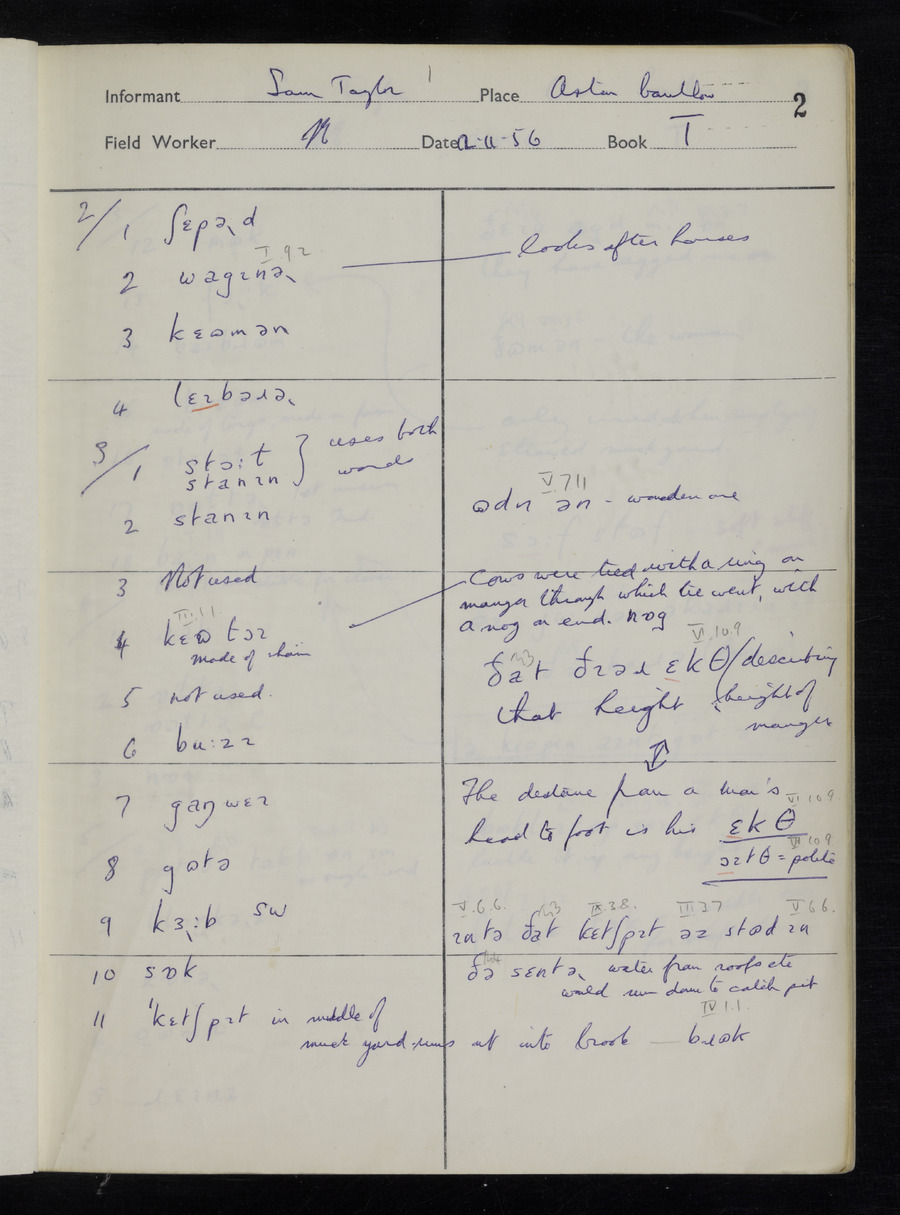 Informant Sam Taylor Place Aston Cantlow 2
Field Worker Date 2.11.56 Book I
2/1 ʃɛpəɻd
I.9 2
2 wagɪnəɻ
looks after horses
3 kɛʊmən
4 lɛɪbəɹəɻ
3/1 stɔ:t
stanɪn } uses both words
2 stanɪn
V.7 11
ʊdn ən - wooden one
3 Not used
Cows were tied with a ring on
manger through which tie went, with
a nog on end. nɒg
III.1 1.
4 kɛʊ təɪ
made of chain
VI.10.9
ðat ðɪəɹ ɛkθ / describing
that height height of
manger
5 not used.
6 bu:zɪ
7 gaŋwɛɪ
The distance from a man's
VI 10 9.
head to foot is his ɛkθ
VI 10 9
əɪtθ = polite
8 gʊtə
9 kɜ:b sw
V.6.6. IX.3 8. III 3 7 V 6 6.
ɪntə ðat kɛtʃpɪt əz stʊd ɪn
10 sɒk
ðə sɛntəɻ water from roofs etc
would run down to catch pit
11 ˈkɛtʃpɪt in middle of
IV 1.1.
muck yard runs out into brook — bɹʊk